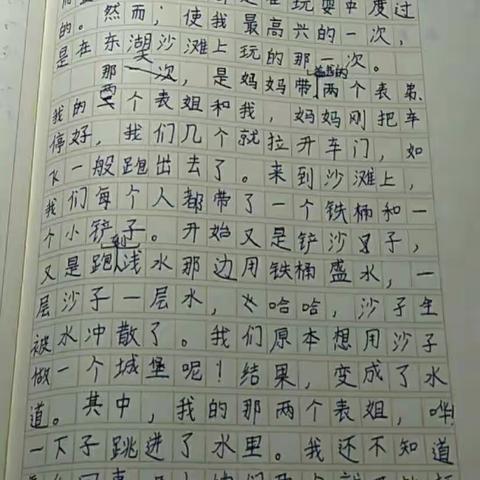 玩耍中度过
的。然而；使我最高兴的一次，
是在东湖沙滩上玩的那一次。
那一次，是妈妈带着我的两个表弟、
我的两个表姐和我，妈妈刚把车
停好，我们几个就拉开车门，如
飞一般跑出去了。来到沙滩上，
我们每个人都带了一个铁桶和一
个小铲子。开始又是铲沙子，
又是跑到浅水那边用铁桶盛水，一
层沙子一层水，哈哈，沙子全
被水冲散了。我们原本想用沙子
做一个城堡呢！结果，变成了水
道。其中，我的那两个表姐，哗
一下子跳进了水里。我还不知道